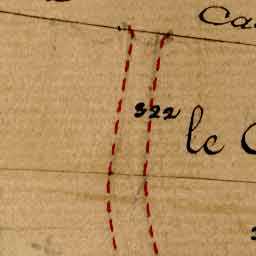 Ca
322
le C